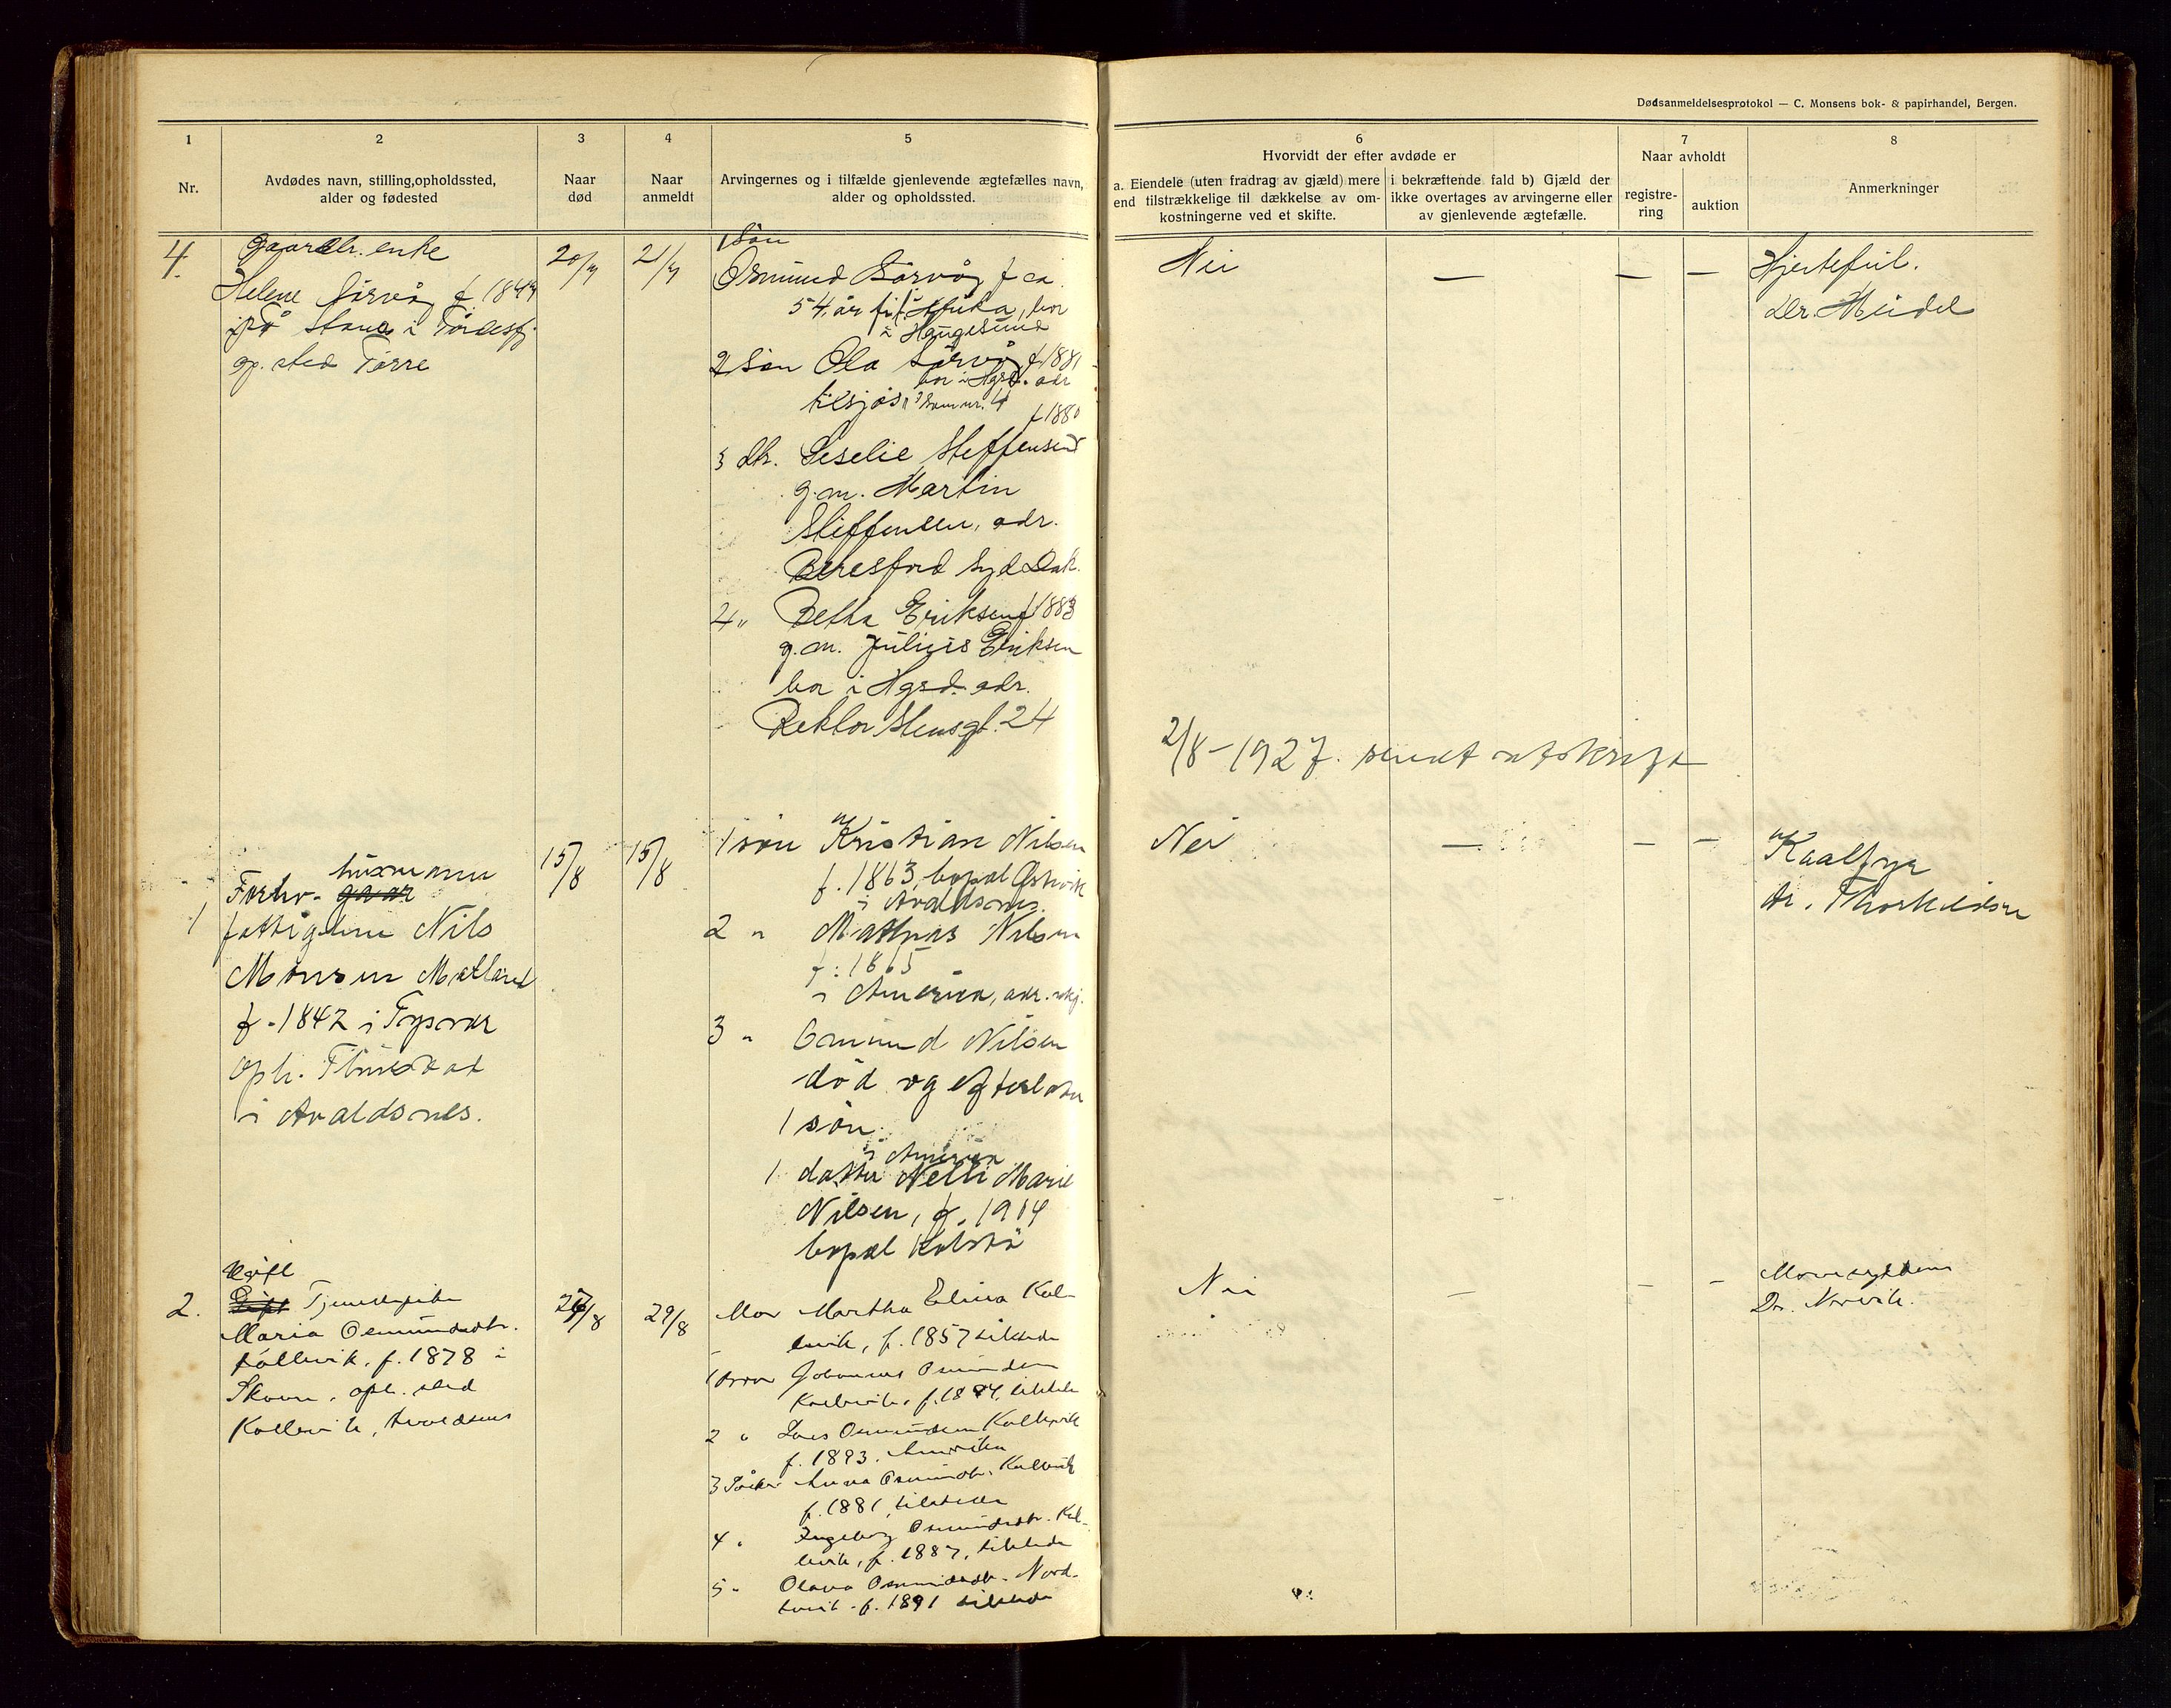 Dødsanmeldelsesprotokol — C. Monsens bok- & papirhandel, Bergen.
1
2
3
4
5
6
7
8
Nr.
Avdødes navn, stilling, opholdssted,
alder og fødested
Naar
død
Naar
anmeldt
Arvingernes og i tilfælde gjenlevende ægtefælles navn,
alder og opholdssted.
Hvorvidt der efter avdøde er
a. Eiendele (uten fradrag av gjæld) mere
end tilstrækkelige til dækkelse av om-
kostningerne ved et skifte.
i bekræftende fald b) Gjæld der
ikke overtages av arvingerne eller
av gjenlevende ægtefælle.
Naar avholdt
registre-
ring
auktion
Anmerkninger
4.
Gaardbr. enke
Helene Sørvåg f. 1844
på i Førdesfj.
op. sted Førre
20/7
21/7
1 Søn
Osmund Sørvåg f ca.
54 år bor
i Haugesund
2 Søn Ola Sørvåg f. 1881
bor i Hgsd. adr
tilsjøs
f 1880
3 dtr. Seselie Steffensen
g.m. Martin
Steffensen, adr.
Beresford Syd Dak.
4 " Betha Eriksen f 1883
g.m. Julius Eriksen
bor i Hgsd. adr.
Rektor Stensgt. 24
Nei — — —
Hjertefeil.
Dr. Heidel
2/8-1927. sendt utskrift
1
Forhv. husmann
gaar
fattiglem Nils
Monsen Matland
f. 1842 i Tysvær
oph.
i Avaldsnes.
15/8
15/8
1 søn Kristian Nilsen
f. 1863, bopæl
i Avaldsnes.
2 " Mathias Nilsen
f. 1865
i Amerika, adr. ukj.
3 " Osmund Nilsen
død og efterlater
1 søn
i Amerika
1 datter Nelli Marie
Nilsen, f. 1914
bopæl Kolstø
Nei — — —
Dr. Thorkildsen
2.
Ugift
Gift Tjenestepike
Maria Osmundsdtr.
Kollevik, f. 1878 i
Skaare, oph. sted
Kollevik, Avaldsnes
27/8
29/8
Mor Martha Elina Kol-
levik, f. 1857 tilstede
1 bror Johannes Osmundsen
Kollevik, f. 1894, tilstede
2 " Lars Osmundsen Kollevik
f. 1893. Amerika
3 Søster Anna Osmundsdtr. Kollevik
f. 1881, tilstede
4 " Ingeborg Osmundsdtr. Kol-
levik, f. 1887, tilstede
5 " Olava Osmundsdtr. Nord-
f. 1891 tilstede
Nei — — —
Dr. Norvik.